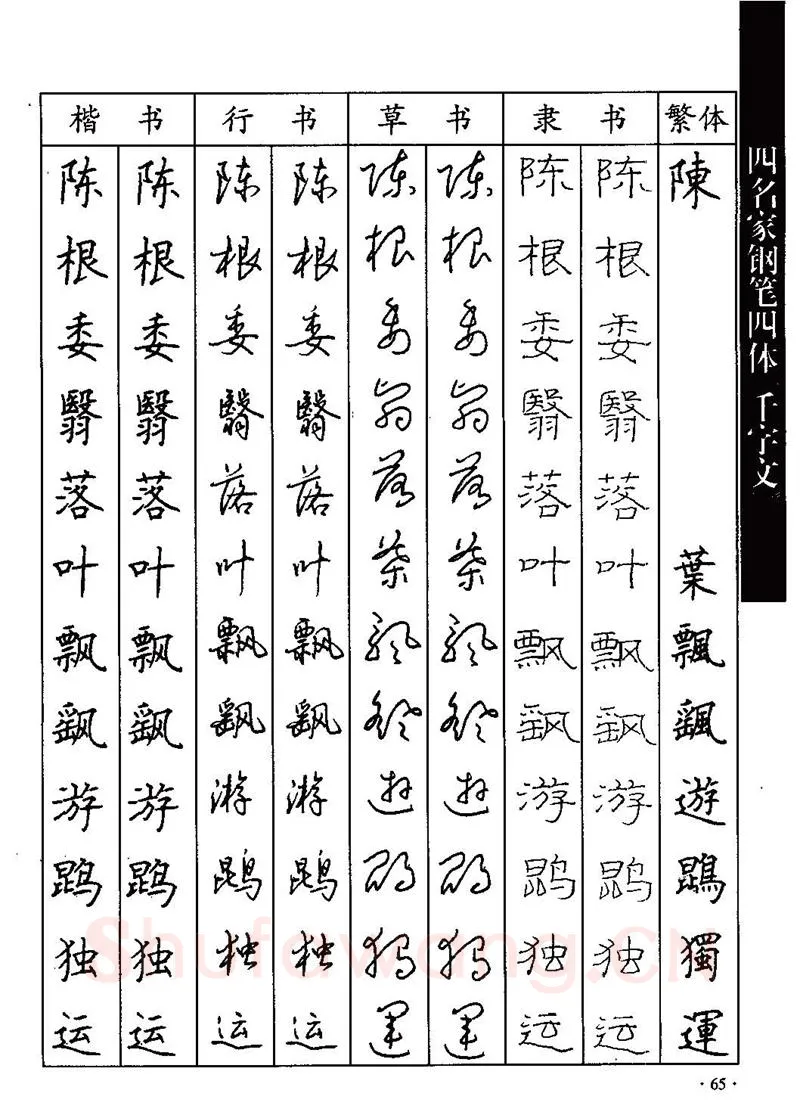 楷书 行书 草书 隶书 繁体
陈 陈 陈 陈 陈 陈 陈 陈 陳
根 根 根 根 根 根 根 根
委 委 委 委 委 委 委 委
翳 翳 翳 翳 翳 翳 翳 翳
落 落 落 落 落 落 落 落
叶 叶 叶 叶 葉 葉 叶 叶 葉
飘 飘 飘 飘 飘 飘 飘 飘 飄
飖 飖 飖 飖 飖 飖 飖 飖 颻
游 游 游 游 遊 遊 游 游 遊
鹍 鹍 鹍 鹍 鹍 鹍 鹍 鹍 鵾
独 独 独 独 独 独 独 独 獨
运 运 运 运 運 運 运 运 運
四名家钢笔四体千字文
Shufawang.CN
·65·